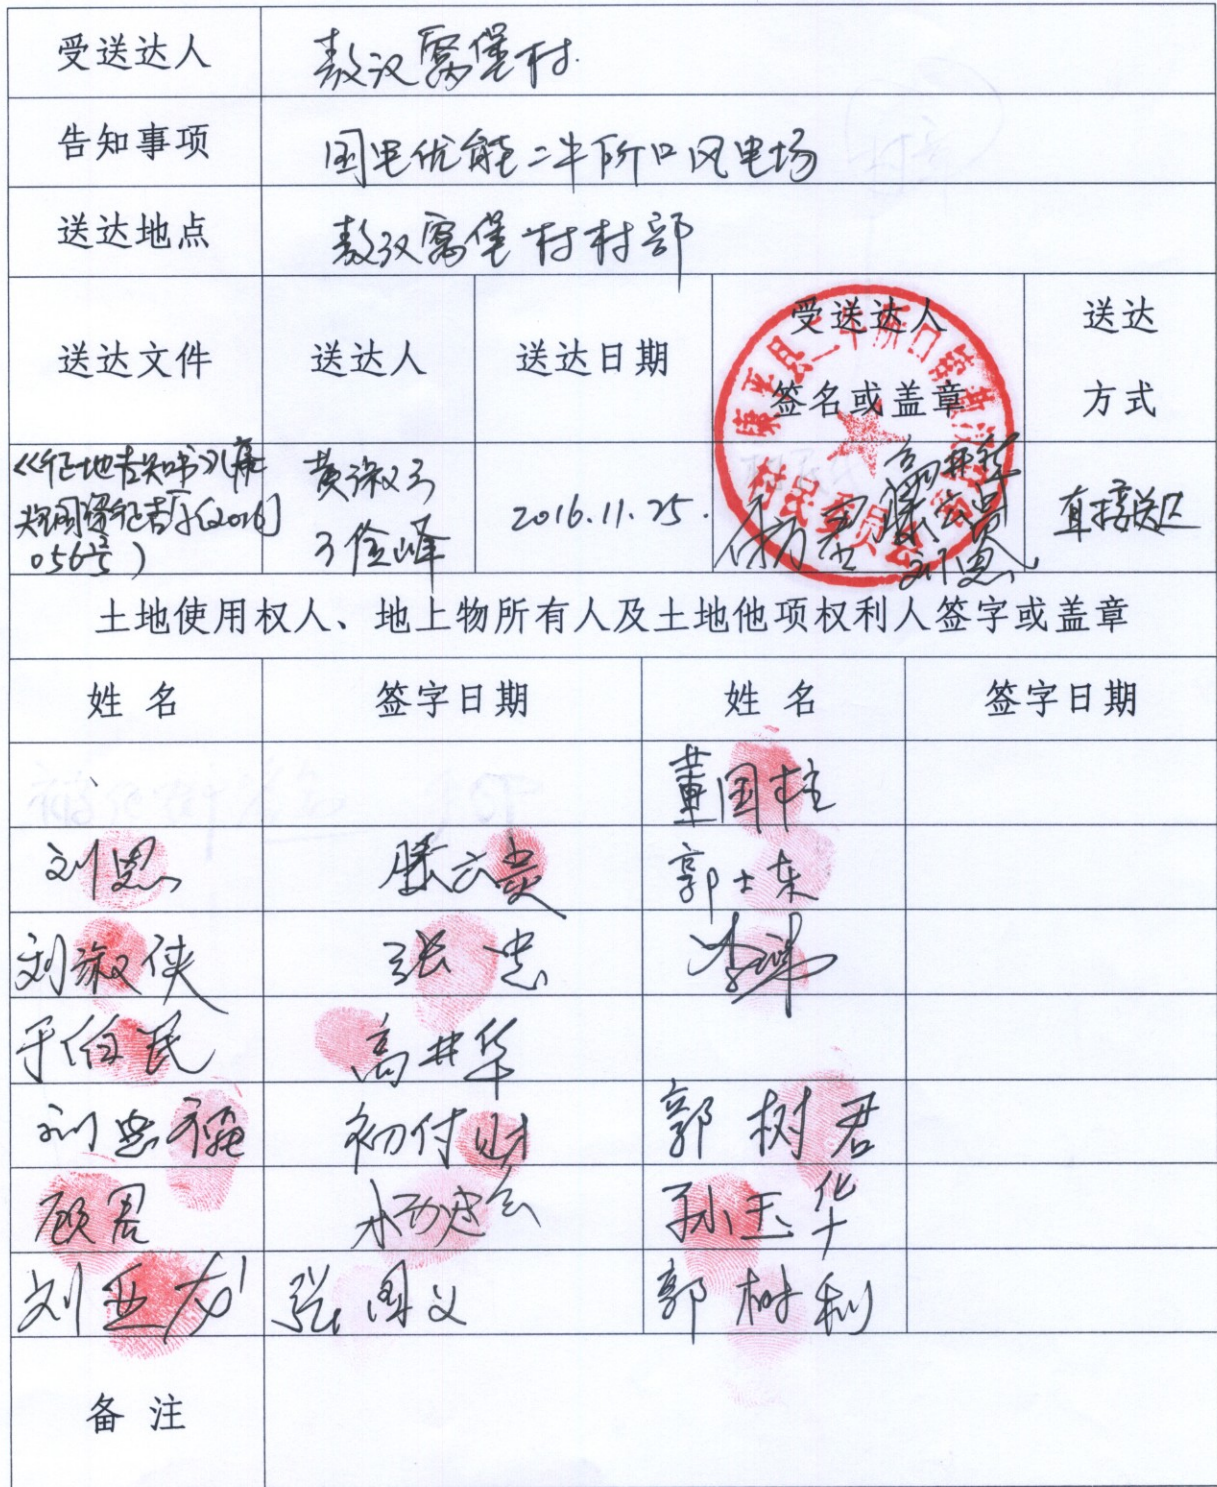 受送达人 敖汉窝堡村
告知事项 国电优能二牛所口风电场
送达地点 敖汉窝堡村村部
送达文件 送达人 送达日期 受送达人 送达
签名或盖章 方式
《征地告知书》(康
国资征告字[2016] 黄淑 2016.11.25. 高井华 直接送达
056号) 峰 刘恩
康平县二牛所口镇敖汉窝堡
村民委员会
土地使用权人、地上物所有人及土地他项权利人签字或盖章
姓名 签字日期 姓名 签字日期
董国柱
刘恩 滕云 郭士东
刘淑侠 张忠
于伯民 高井华
刘忠 初付财 郭树君
顾君 孙玉华
刘亚龙 张国义 郭树利
备注